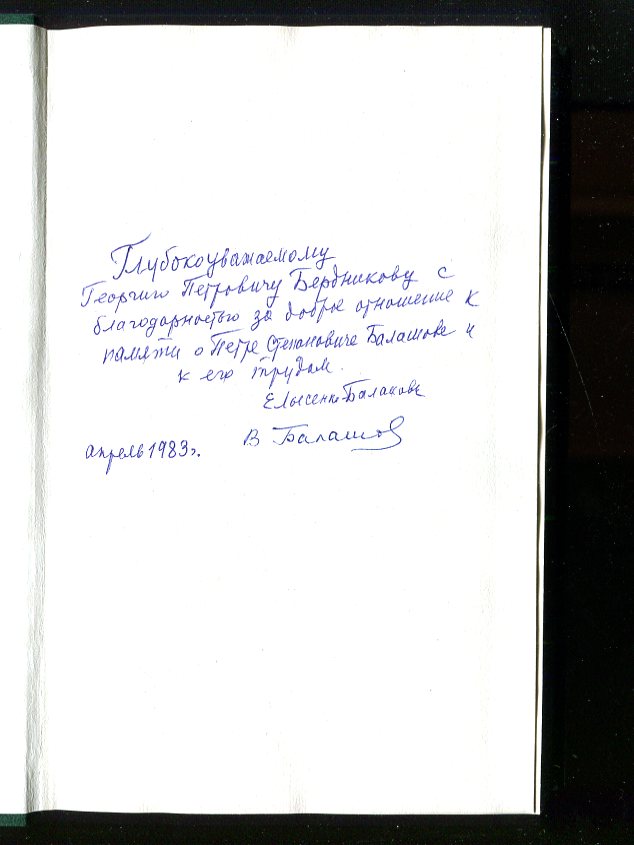 Глубокоуважаемому
Георгию Петровичу Бердникову с
благодарностью за доброе отношение к
памяти о Петре Степановиче Балашове и
к его трудам.
В Балашов
апрель 1983г.